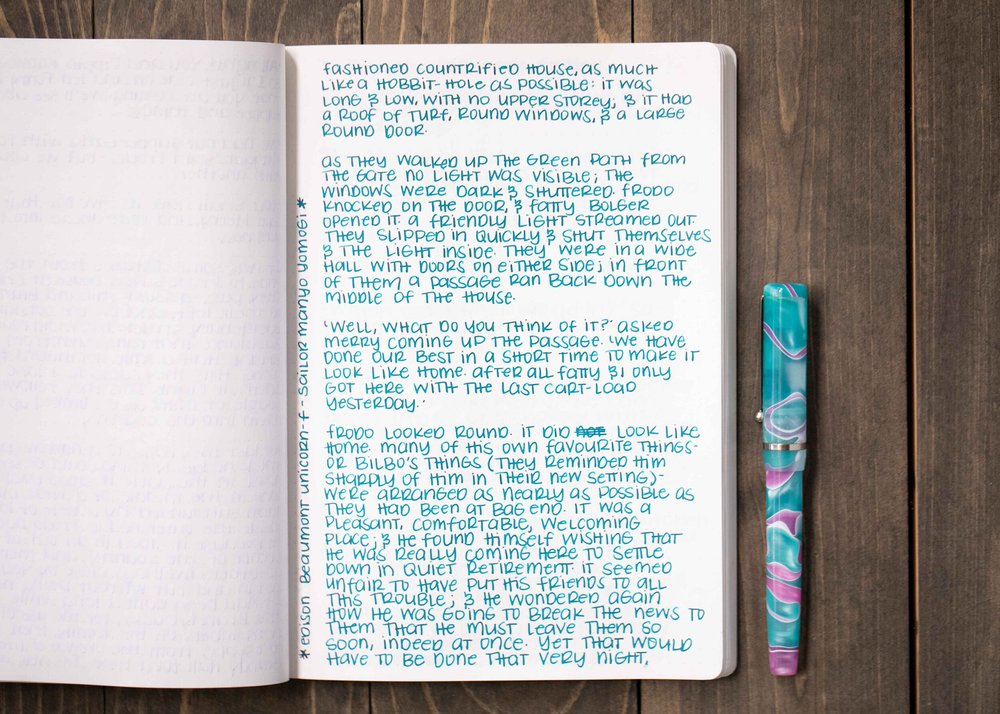 fashioned countrified house, as much
like a hobbit-hole as possible: it was
long & low, with no upper storey; & it had
a roof of turf, round windows, & a large
round door.
as they walked up the green path from
the gate no light was visible; the
windows were dark & shuttered. frodo
knocked on the door, & fatty bolger
opened it. a friendly light streamed out.
they slipped in quickly & shut themselves
& the light inside. they were in a wide
hall with doors on either side; in front
of them a passage ran back down the
middle of the house.
'well, what do you think of it?' asked
merry coming up the passage. 'we have
done our best in a short time to make it
look like home. after all fatty & i only
got here with the last cart-load
yesterday.'
frodo looked round. it did not look like
home. many of his own favourite things-
or bilbo's things (they reminded him
sharply of him in their new setting)-
were arranged as nearly as possible as
they had been at bag end. it was a
pleasant, comfortable, welcoming
place; & he found himself wishing that
he was really coming here to settle
down in quiet retirement. it seemed
unfair to have put his friends to all
this trouble; & he wondered again
how he was going to break the news to
them that he must leave them so
soon, indeed at once. yet that would
have to be done that very night,
*edison beaumont unicorn-f - sailor manyo yomogi*